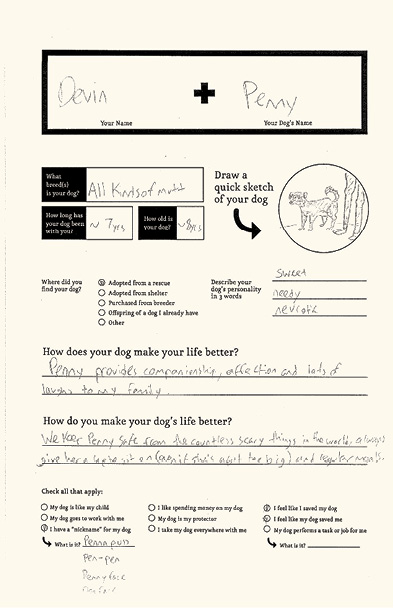 Devin + Penny
Your Name Your Dog's Name
What breed(s) is your dog? All Kinds of mutt
How long has your dog been with you? ~ 7 yrs How old is your dog? ~ 8 yrs
Draw a quick sketch of your dog
Where did you find your dog?
Adopted from a rescue
Adopted from shelter
Purchased from breeder
Offspring of a dog I already have
Other
Describe your dog's personality in 3 words
Sweet
needy
neurotic
How does your dog make your life better?
Penny provides companionship, affection and lots of
laughs to my family.
How do you make your dog's life better?
We keep Penny safe from the countless scary things in the world, always
give her a to sit on (even if she's a bit too big) and regular meals.
Check all that apply:
My dog is like my child
My dog goes to work with me
I have a "nickname" for my dog
What is it? Penna puss
Pen-pen
Pennyface
I like spending money on my dog
My dog is my protector
I take my dog everywhere with me
I feel like I saved my dog
I feel like my dog saved me
My dog performs a task or job for me
What is it?